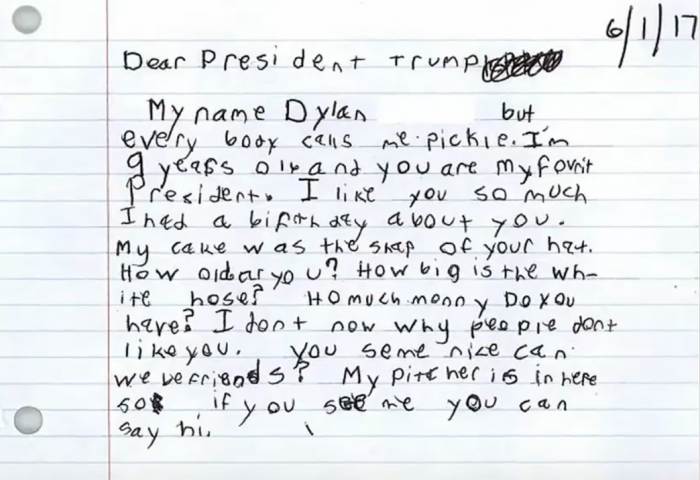 6/1/17
Dear President Trump
My name Dylan but
every body calls me pickle. I'm
9 years old and you are my favorit
President. I like you so much
I had a birthday about you.
My cake was the shap of your hat.
How old ar you? How big is the wh-
ite hose? HOmuch monny Do you
have? I dont now why people dont
like you. you seme nice can
we be friends? My pitcher is in here
so if you see me you can
say hi.